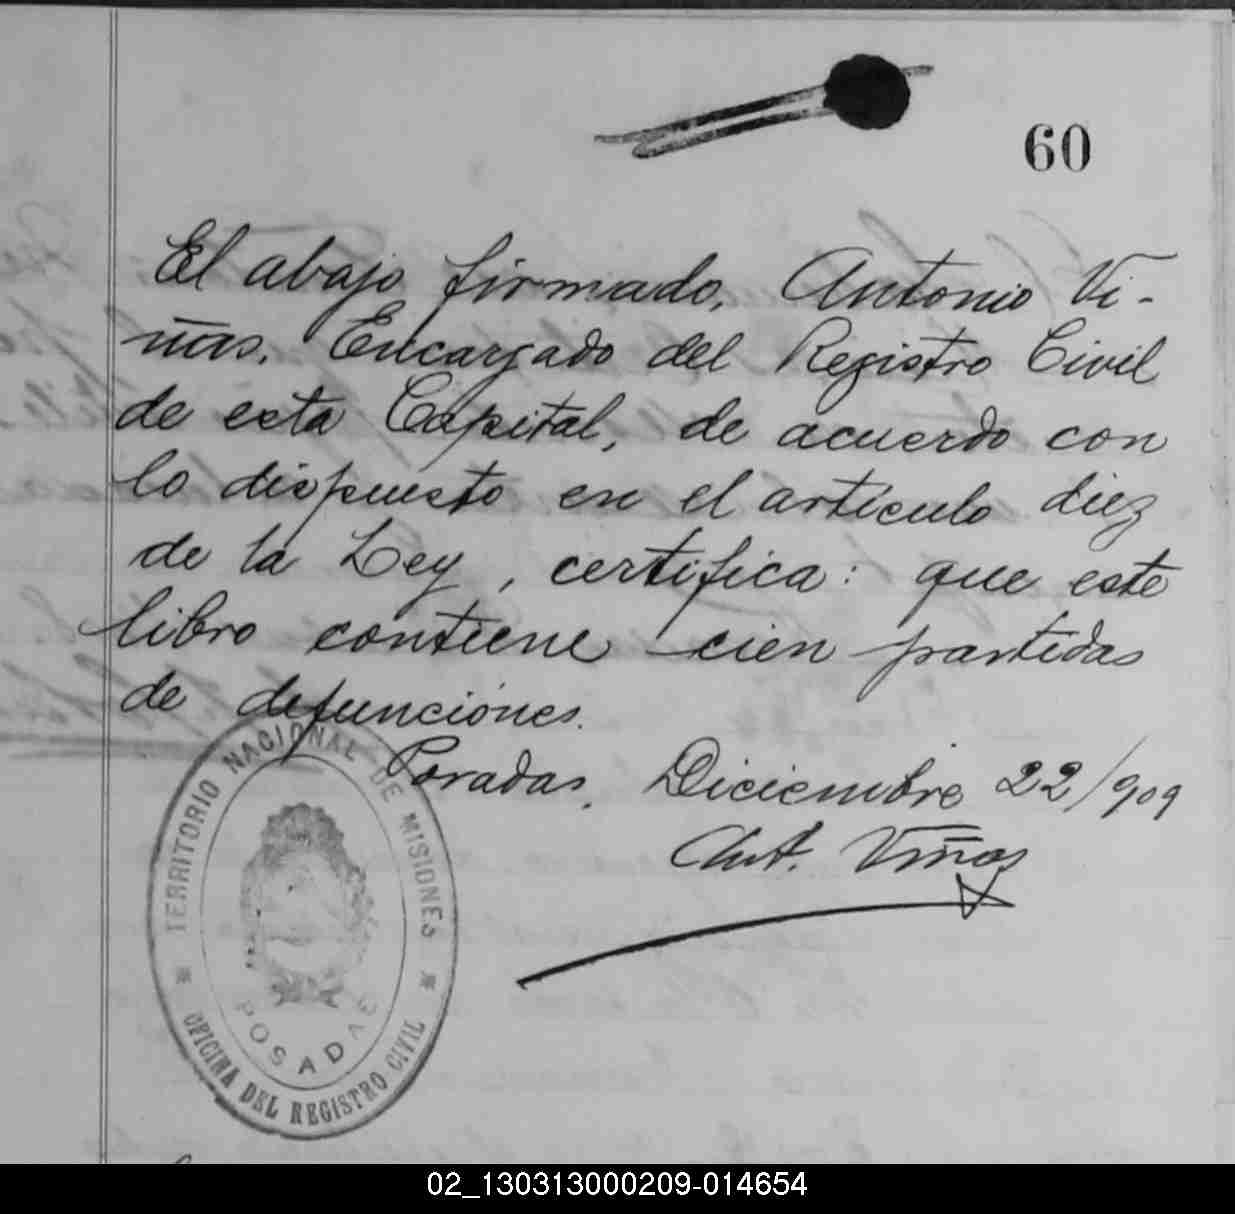 60
El abajo firmado, Antonio Vi-
ñas, Encargado del Registro Civil
de esta Capital, de acuerdo con
lo dispuesto en el artículo diez
de la Ley, certifica: que este
libro contiene cien partidas
de defunciones.
Posadas, Diciembre 22/909
Ant. Viñas
TERRITORIO NACIONAL DE MISIONES
POSADAS
OFICINA DEL REGISTRO CIVIL
02_130313000209-014654